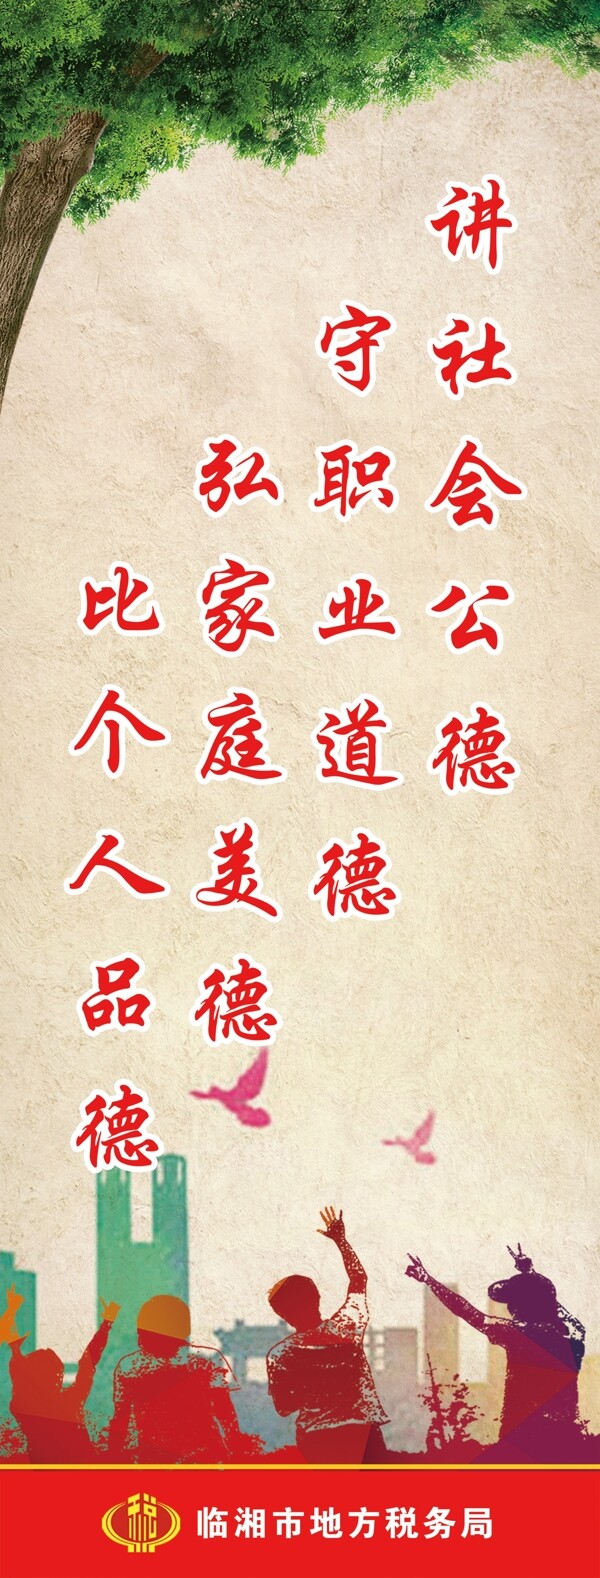 讲社会公德
守职业道德
弘家庭美德
比个人品德
税
临湘市地方税务局